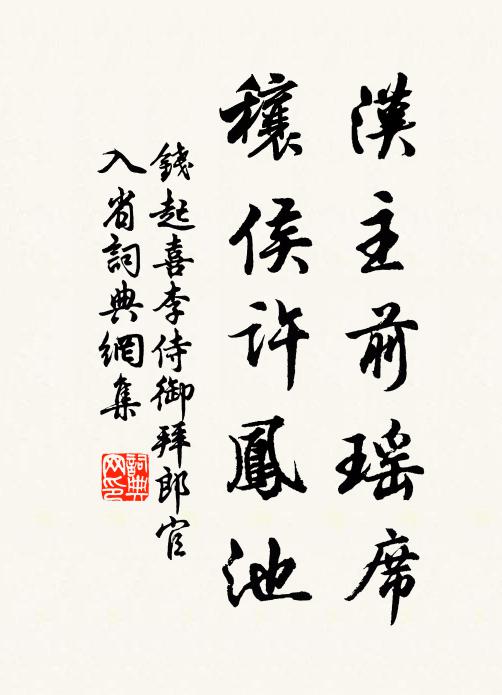 漢主前瑶席
穰侯許鳳池
錢起喜李侍御拜郎官
入省詞典網集
詞典网印